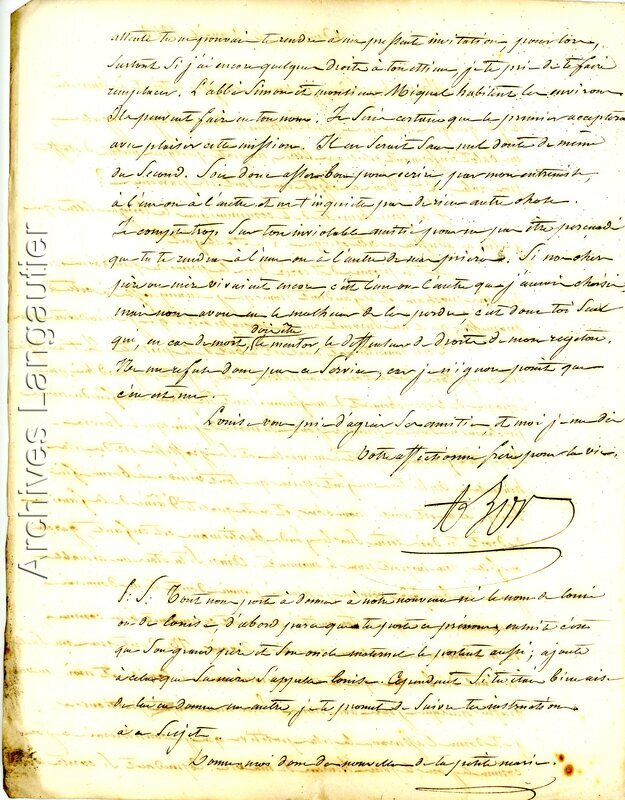 attente tu ne pouvais te rendre à ma pressente invitation, pour lors,
surtout si j'ai encore quelque droit à ton estime, je te pri de te faire
remplacer. L'abbé Simon et monsieur Miquel habitent les environs
Ils peuvent faire en ton nom. Je suis certain que le premier acceptera
avec plaisir cette mission. Il en serait sans nul doute de même
du second. Sois donc assez bon pour écrire, par mon entremise,
à l'un ou à l'autre et ne t'inquiete pas de rien autre chose.
Je compte trop sur ton inviolable amitié pour ne pas être persuadé
que tu te rendras à l'une ou à l'autre de mes prières. Si nos cher
père ou mère vivaient encore, c'est l'un ou l'autre que j'aurois choisi
mais nous avons eu le malheur de les perdre, c'est donc toi seul
qui, en cas de mort, dois être le mentor, le deffenseur de droits de mon rejeton.
Ne me refuse donc pas ce service, car je n'ignore point que
c'en est un.
Louise vous pri d'agréer ses amitiés, et moi je me dis
Votre affectionné frère pour la vie.
P: S: Tout nous porte à donner à notre nouveau né le nom de louis
ou de louise, d'abord parce que tu porte ce prénom, ensuite c'est
que son grand père et son oncle maternel le portent aussi; ajoute
à cela que sa mère s'appelle louise. Cependant si tu étais bien aise
de lui en donner un autre, je te promet de suivre tes instructions
à ce sujet.
Donne nous donc des nouvelles de la petite marie.
Archives Langautier